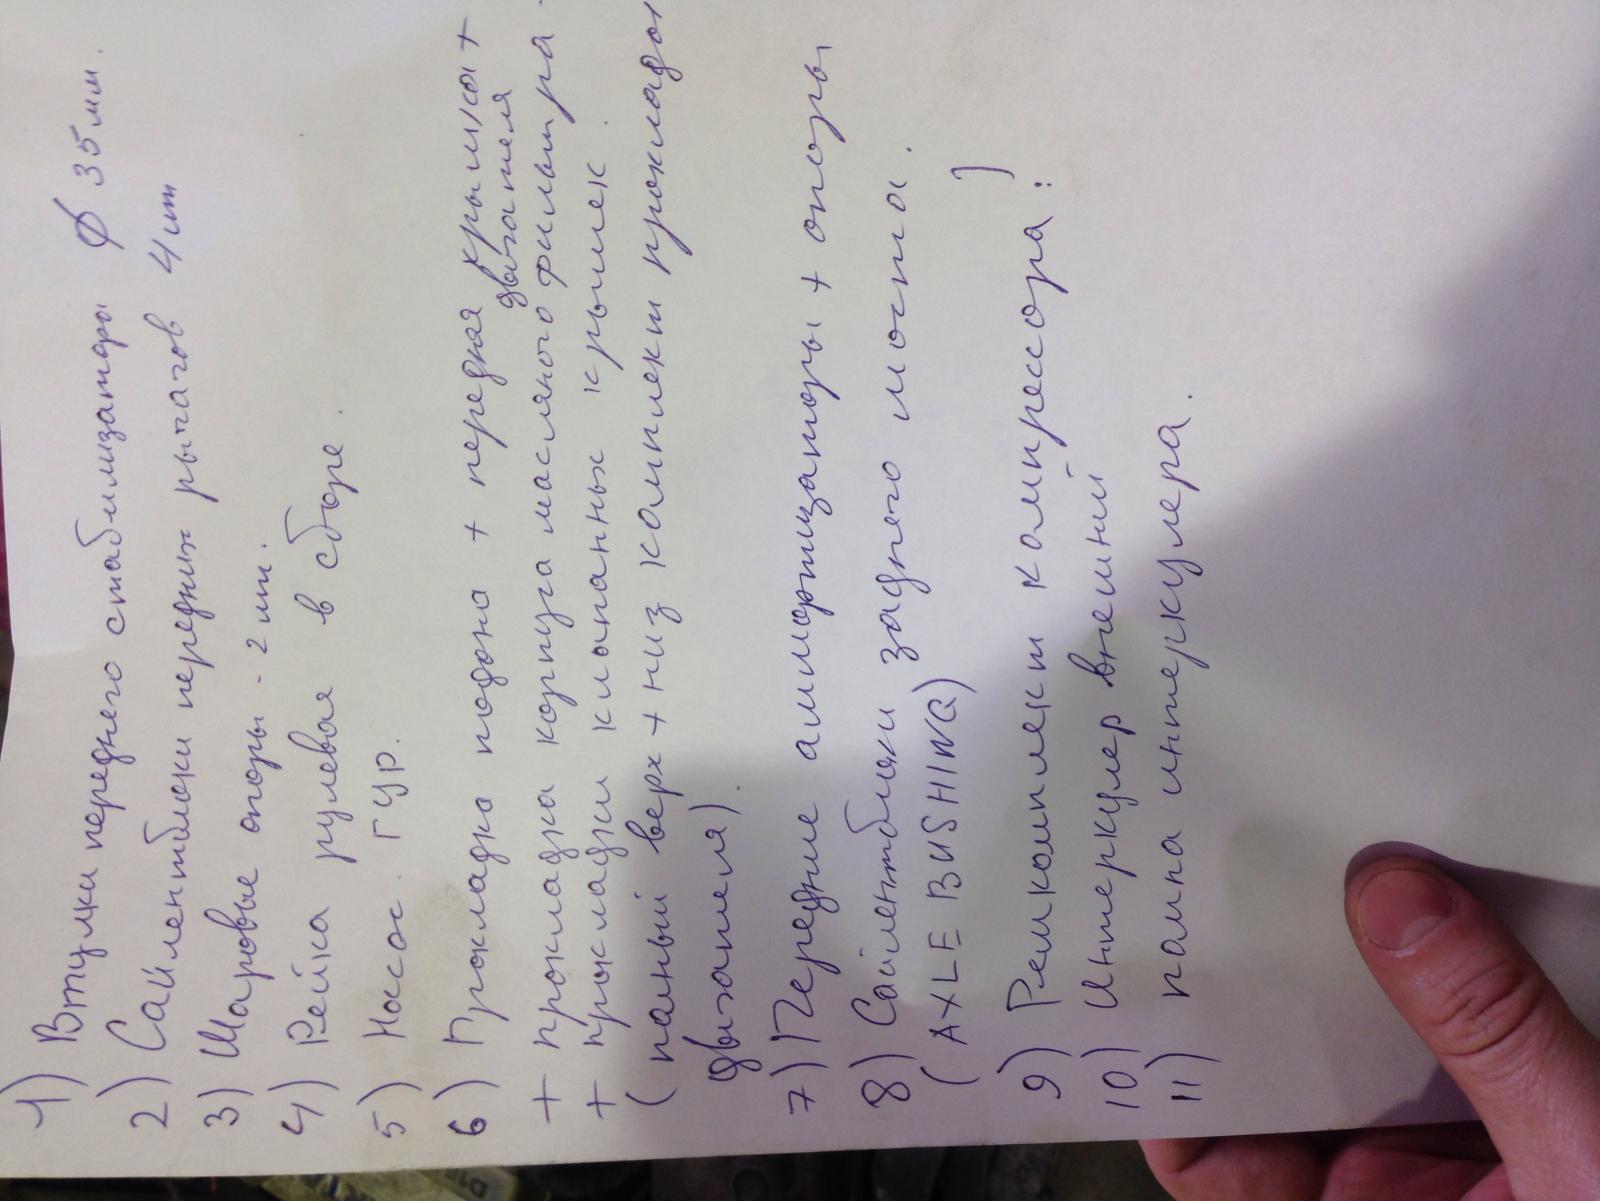 1) Втулки переднего стабилизатора ⌀ 35 мм.
2) Сайлентблоки передних рычагов 4 шт
3) Шаровые опоры - 2 шт.
4) Рейка рулевая в сборе.
5) Насос ГУР.
6) Прокладка подона + передняя крышка +
двигателя
+ прокладка корпуса масляного фильтра
+ прокладки клапаных крышек
(полный верх + низ комплект прокладок
двигателя).
7) Передние аммортизаторы + опоры
8) Сайлентблоки заднего моста.
(AXLE BUSHING)
9) Ремкомплект компрессора?
10) Интеркулер внешний
11) помпа интеркулера.